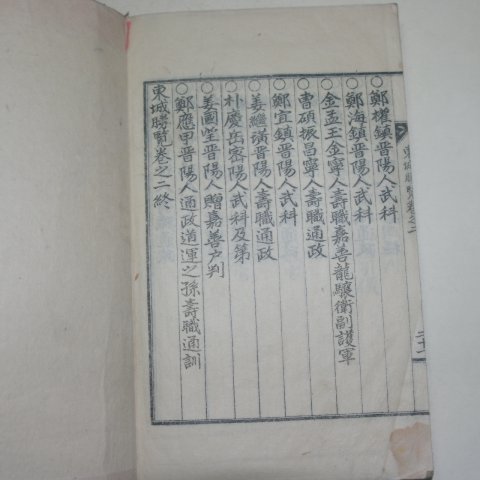 東城勝覽卷之二
二十一
○鄭權鎮晋陽人武科
○鄭海鎮晋陽人武科
○金孟玉金寧人壽職嘉善龍驤衛副護軍
○曺碩振昌寧人壽職通政
○鄭宜鎮晋陽人武科
○姜繼璜晋陽人壽職通政
○朴慶岳密陽人武科及第
○姜國堂晋陽人贈嘉善戶判
○鄭應甲晋陽人通政道運之孫壽職通訓
東城勝覽卷之二終